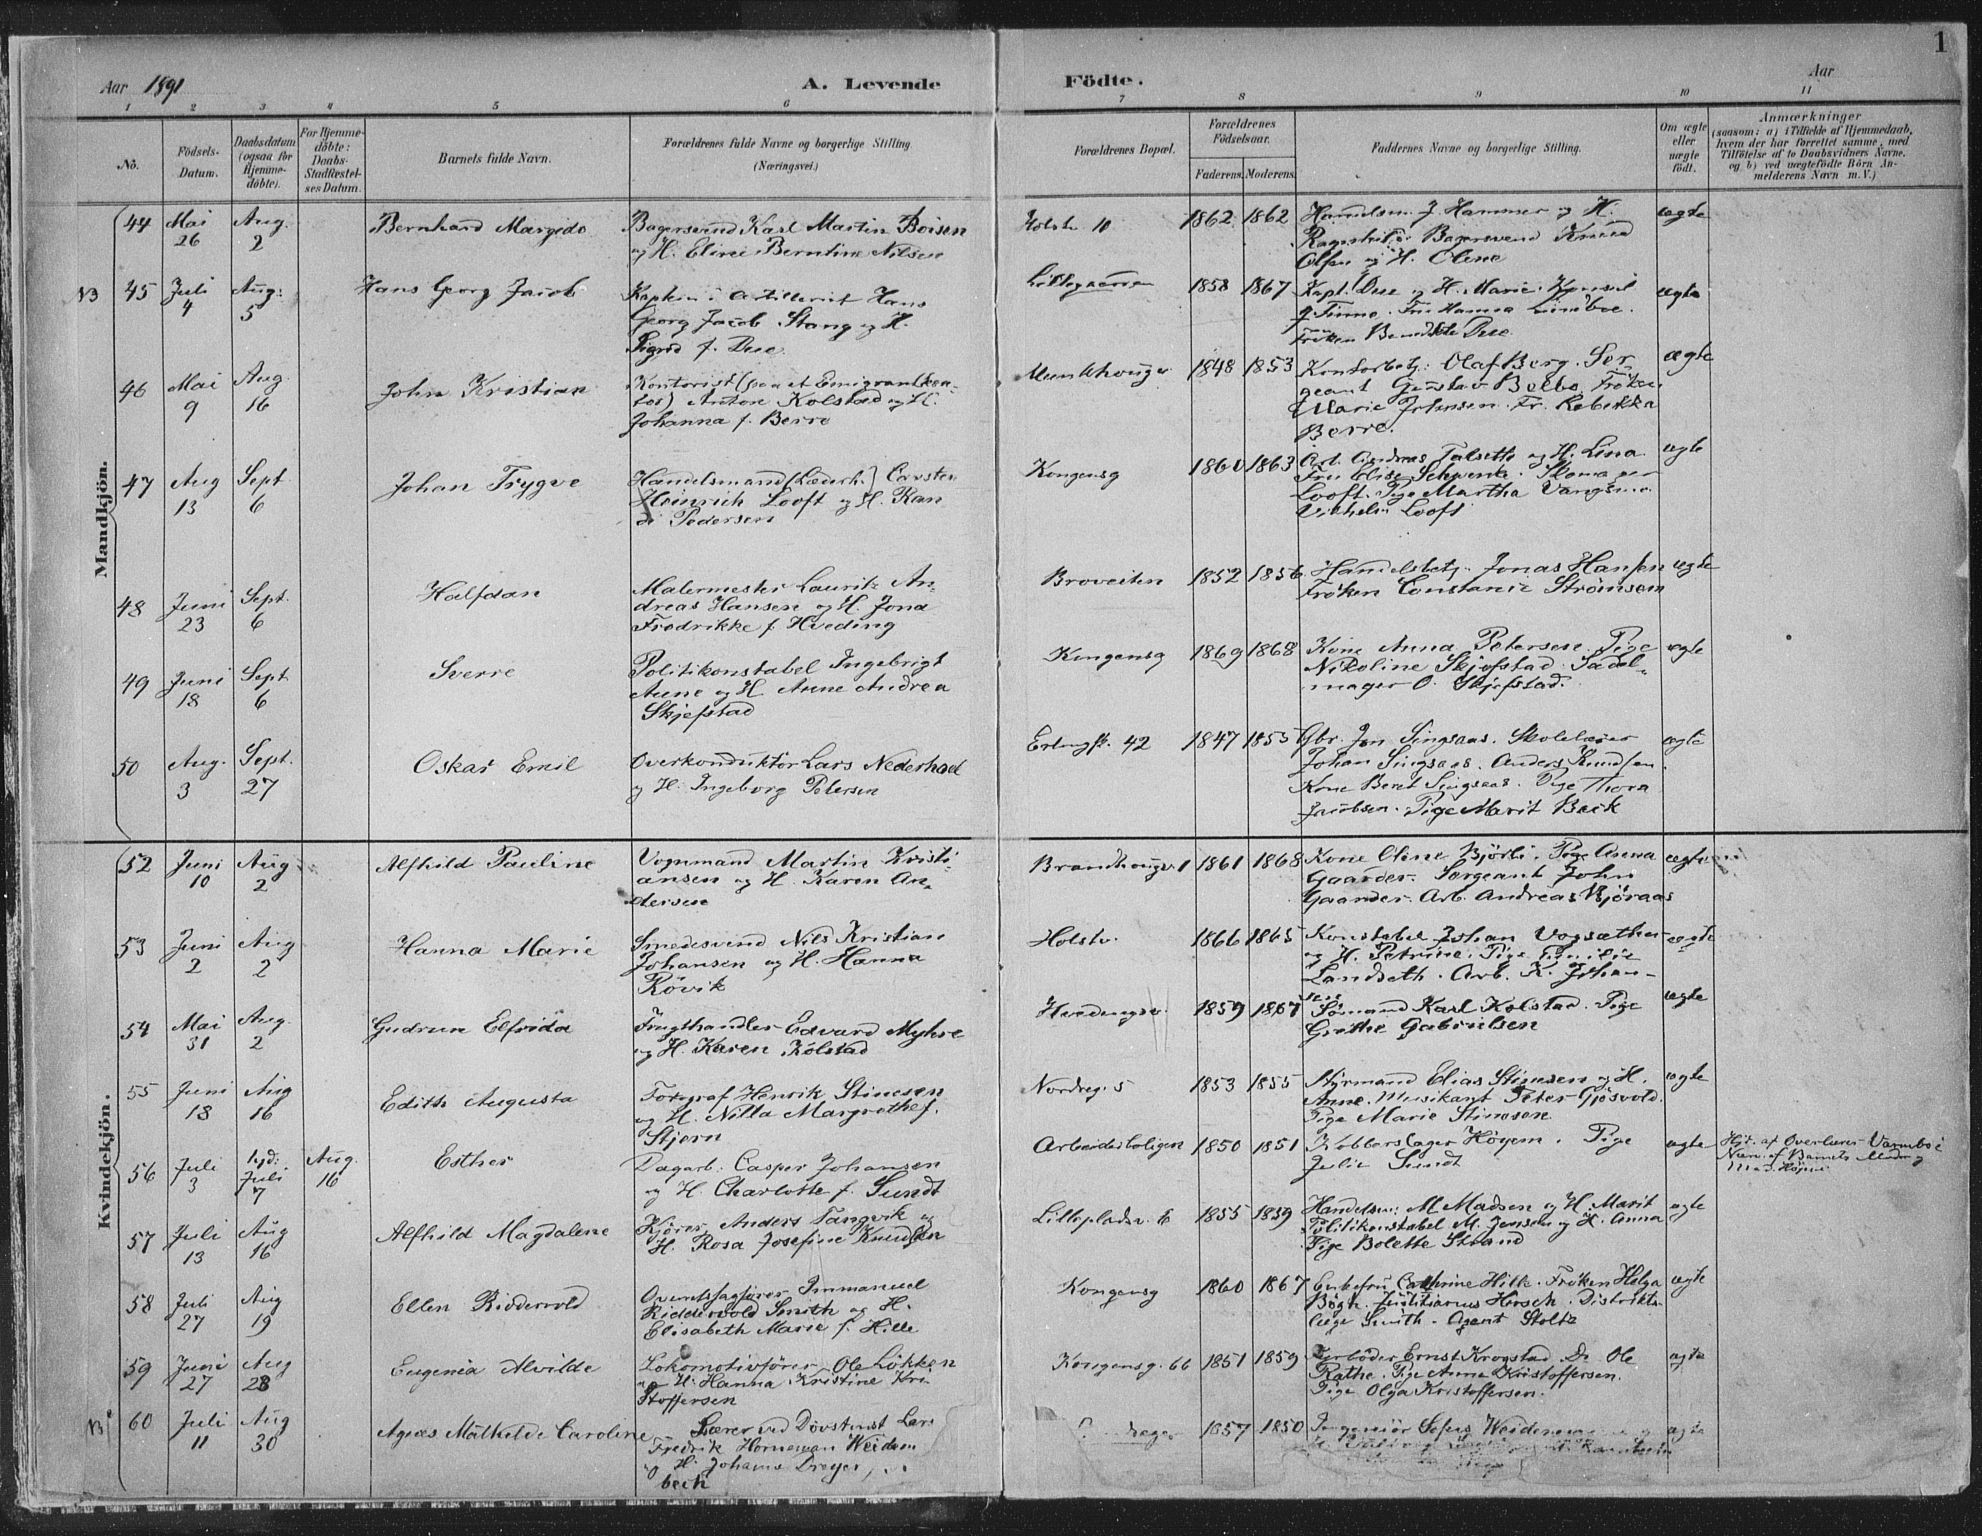 1
Aar 1891
A. Levende
Födte.
Aar
1 2 3 4 5 6 7 8 9 10 11
No.
Födsels-
Datum.
Daabsdatum
(ogsaa for
Hjemme-
döbte).
For Hjemme-
döbte:
Daabs-
Stadfæstel-
ses Datum.
Barnets fulde Navn.
Forældrenes fulde Navne og borgerlige Stilling
(Næringsvei.)
Forældrenes Bopæl.
Forældrenes
Födselsaar.
Faderens. Moderens.
Faddernes Navne og borgerlige Stilling.
Om ægte
eller
uægte
födt.
Anmærkninger
(saasom: a) i Tilfælde af Hjemmedaab,
hvem der har forrettet samme, med
Tilföielse af to Daabsvidners Navne.
og b) ved uægtefödte Börn An-
melderens Navn m. V.)
Mandkjön.
44 Mai 26 Aug. 2 Bernhard Margido
Bagersvend Karl Martin Boisen
og H. Eline Berntine Nilsen
Holstv. 10 1862 1862
Handelsm. J. Hammer og H.
Bagersvend Knud
Olsen og H. Olene
ægte
NB 45 Juli 4 Aug. 5 Hans Georg Jacob
Kaptein i Artilleriet Hans
Georg Jacob Stang og H.
Sigrid f. Due
1858 1867
Kapt. Due og H. Marie. Konsul
Finne. Fru Hanna
Fröken Due
ægte
46 Mai 9 Aug 16 John Kristian
Kontorist (paa et Emigrantkon-
tor) Anton Kolstad og H.
Johanna f. Berre
Munkhougv. 1848 1853
Kontorbetj. Olaf Berg. Ser-
geant Gustav Fröken
Marie Johnsen. Fr. Rebekka
Berre.
ægte
47 Aug 13 Sept 6 Johan Trygve
Handelsmand (Læderh.) Carsten
Heinrich Looft og H. Ran
di Pedersen
Kongensg 1860 1863
Arb. Andreas Talsette og H. Lina
Fru Elise Schwenke.
Looft. Pige Martha
Vilhelm Looft
ægte
48 Juni 23 Sept. 6 Halfdan
Malermester Lauritz An-
dreas Hansen og H. Jona
Fredrikke f. Hveding
Broveiten 1852 1856
Handelsbetj. Jonas Hansen
Fröken Constance Strömsem
ægte
49 Juni 18 Sept 6 Sverre
Politikonstabel Ingebrigt
Aune og H. Anne Andrea
Skjefstad
Kongensg 1869 1868
Kone Anna Petersen. Pige
Nikoline Skjefstad. Sadel-
mager O. Skjefstad.
ægte
50 Aug. 3 Sept. 27 Oskar Emil
Overkonduktör Lars Nederhoel
og H. Ingeborg Petersen
Erlingsk. 42 1847 1855
Gbr. Jon Singsaas. Skolelærer
Johan Singsaas. Anders Knudsen.
Kone Beret Singsaas. Pige Thora
Jacobsen. Pige Marit Beck
ægte
Kvindekjön.
52 Juni 10 Aug 2 Alfhild Pauline
Vognmand Martin Kristi-
ansen og H. Karen An-
dersen
Brandhougv. 1 1861 1868
Kone Oline Björli. Pige Anna
Gaarder. Sergeant John
Gaarder. Arb. Andreas Björaas
ægte
53 Juni 2 Aug 2 Hanna Marie
Smedesvend Nils Kristian
Johansen og H. Hanna
Rövik
Holstv. 1866 1865
Konstabel Johan Vogsæther
og H. Petrine. Pige Emilie
Landseth. Arb. K. Johan-
sen
ægte
54 Mai 31 Aug. 2 Gudrun Elfrida
Frugthandler Edvard Myhre
og H. Karen Kolstad
1859 1867
Sömand Karl Kolstad. Pige
Grethe Gabrielsen
ægte
55 Juni 18 Aug 16 Edith Augusta
Fotograf Henrik Stimesen
og H. Nilla Margrethe f.
Stjern
Nordreg. 5 1853 1855
Styrmand Elias Stimsen og H.
Anne. Musikant Peter Gjösvold.
Pige Marie Stimesen
ægte
56 Juli 3 hjd: Juli 7 Aug. 16 Esther
Dagarb. Casper Johansen
og H. Charlotte f. Sundt
Arbeiderboligen 1850 1851
Kobberslager Höyem. Pige
Julie Sundt
ægte
Hjd. af Overlærer Varmbo i
Nærv. af Barnets Moder og
Mad. Höjem
57 Juli 13 Aug 16 Alfhild Magdalene
Kjörer Anders Tangvik og
H. Rosa Josefine Knudsen
Lillepladsv. 6 1855 1859
Handelsm. M. Madsen og H. Marit
Politikonstabel M. Jensen og H. Anna
Pige Bolette Strand
ægte
58 Juli 27 Aug 19 Ellen Riddervold
Overretssagförer Immanuel
Riddervold Smith og H.
Elisabeth Marie f. Hille
Kongensg 1860 1867
Enkefru Cathrine Hille. Fröken Helga
Bögh. Justitiarius Hersch. Distrikts-
læge Smith. Agent Stoltz
ægte
59 Juni 27 Aug 23 Eugenia Alvilde
Lokomotivförer Ole Lökken
og H. Hanna Kristine Kri-
stoffersen
Kongensg. 66 1851 1859
Ernst Krogstad. Do Ole
Rathe. Pige Anna Kristoffersen.
Pige Olga Kristoffersen.
ægte
NB 60 Juli 11 Aug 30 Agnes Mathilde Caroline
Lærer ved Dövstinst. Lars
Fredrik Horneman Weidem
og H. Johanne Dreyer,
beck
1857 1850
Ingeniör Sofus Weideman
ægte